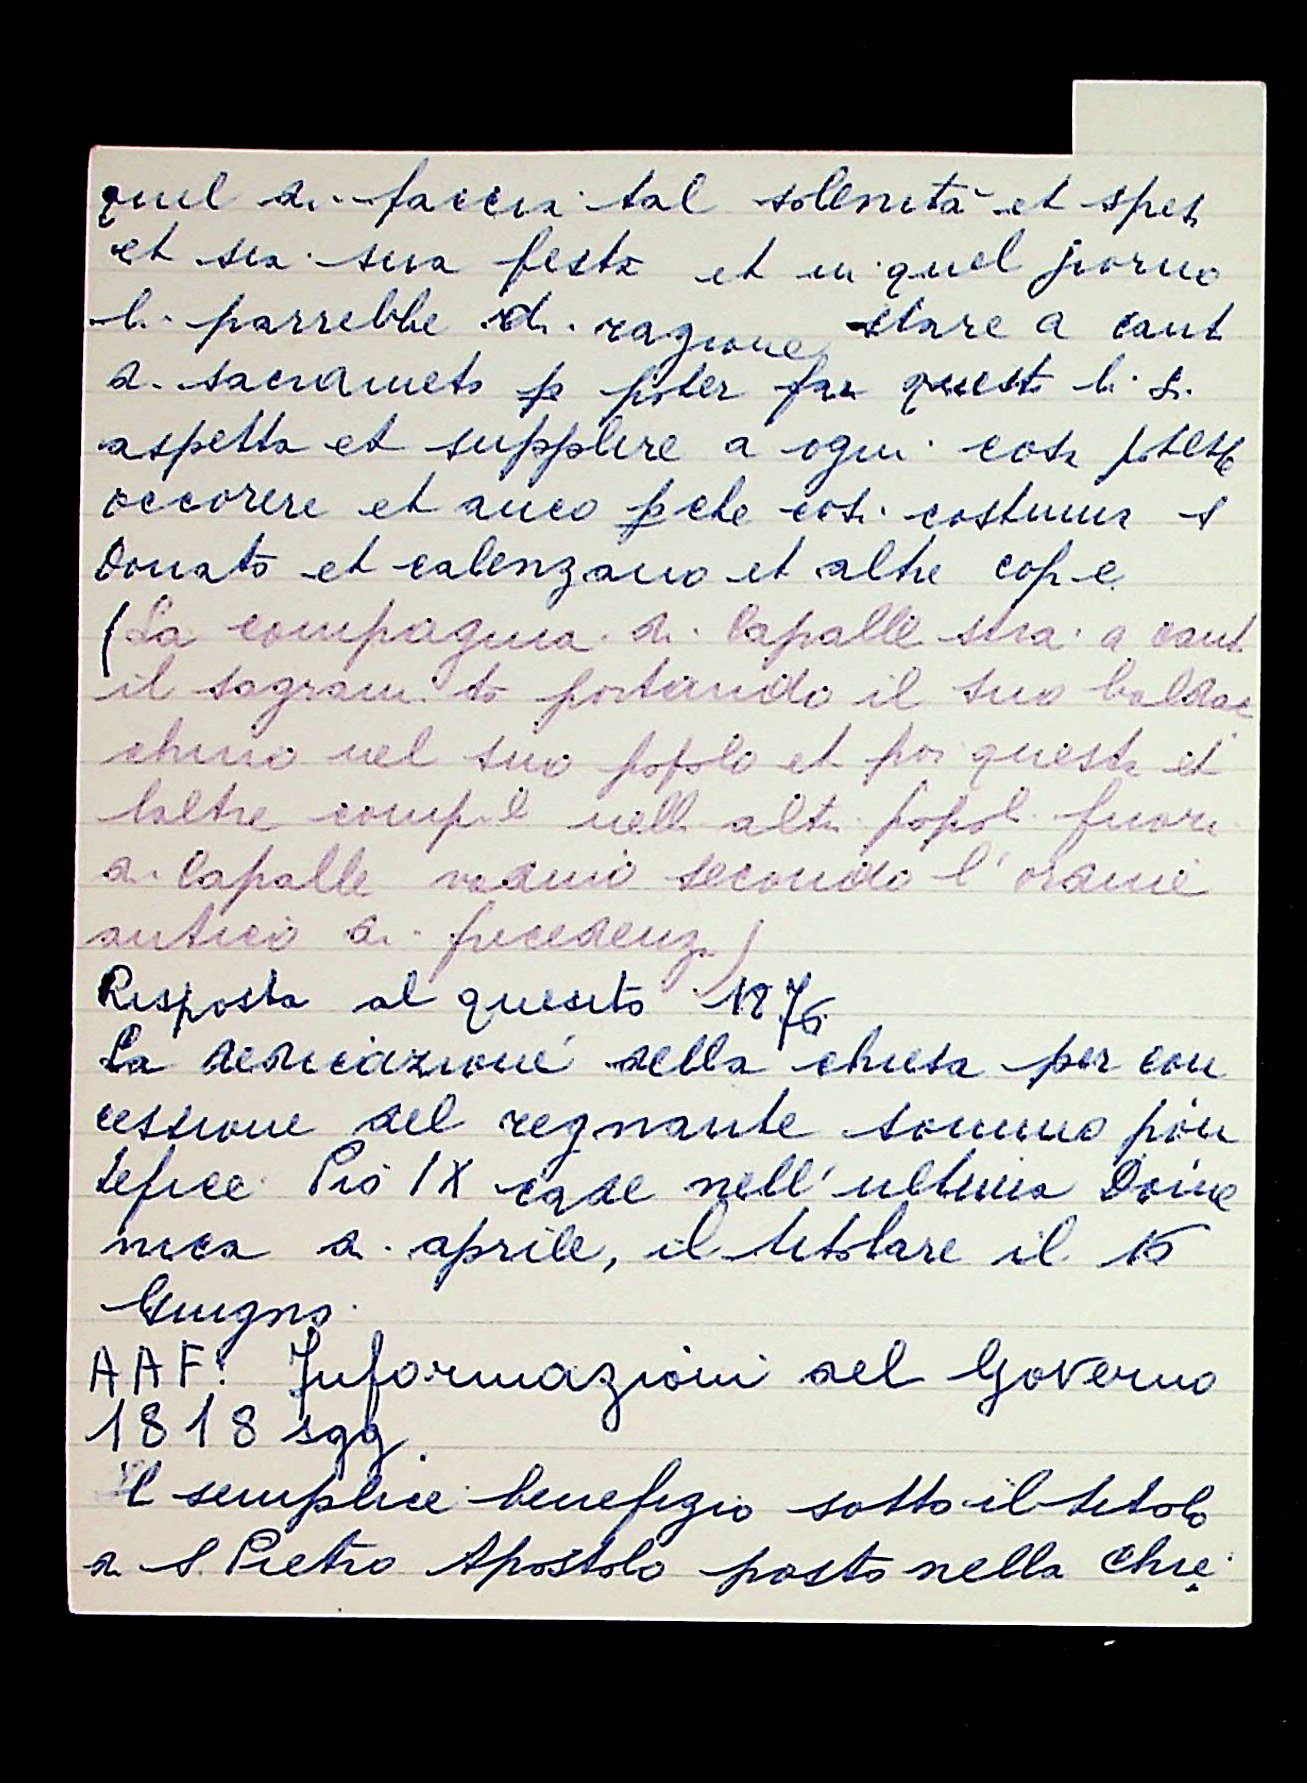 quel di faccia tal solenità et spes
et sia sua festa et in quel giorno
li parrebbe di ragione stare a cant
a. sacrameto p poter far questo li si
aspetta et supplire a ogni cosa potesse
occorere et anco pche così costuma S
Donato et calenzano et altre cop.e
(La compagnia di Capalle stia a cant
il sagram.to portando il suo baldac
chino nel suo popolo et poi questa et
laltre comp.e nelli altri popoli fuori
di Capalle vadino secondo l'ordine
antico di precedenza)
Risposta al quesito 1876
La dedicazione della chiesa per con
cessione del regnante sommo pon
tefice Pio IX cade nell'ultima Dome
nica di aprile, il titolare il 15
Giugno.
AAF: Informazioni del Governo
1818 sgg.
il semplice benefizio sotto il titolo
di S. Pietro Apostolo posto nella Chie